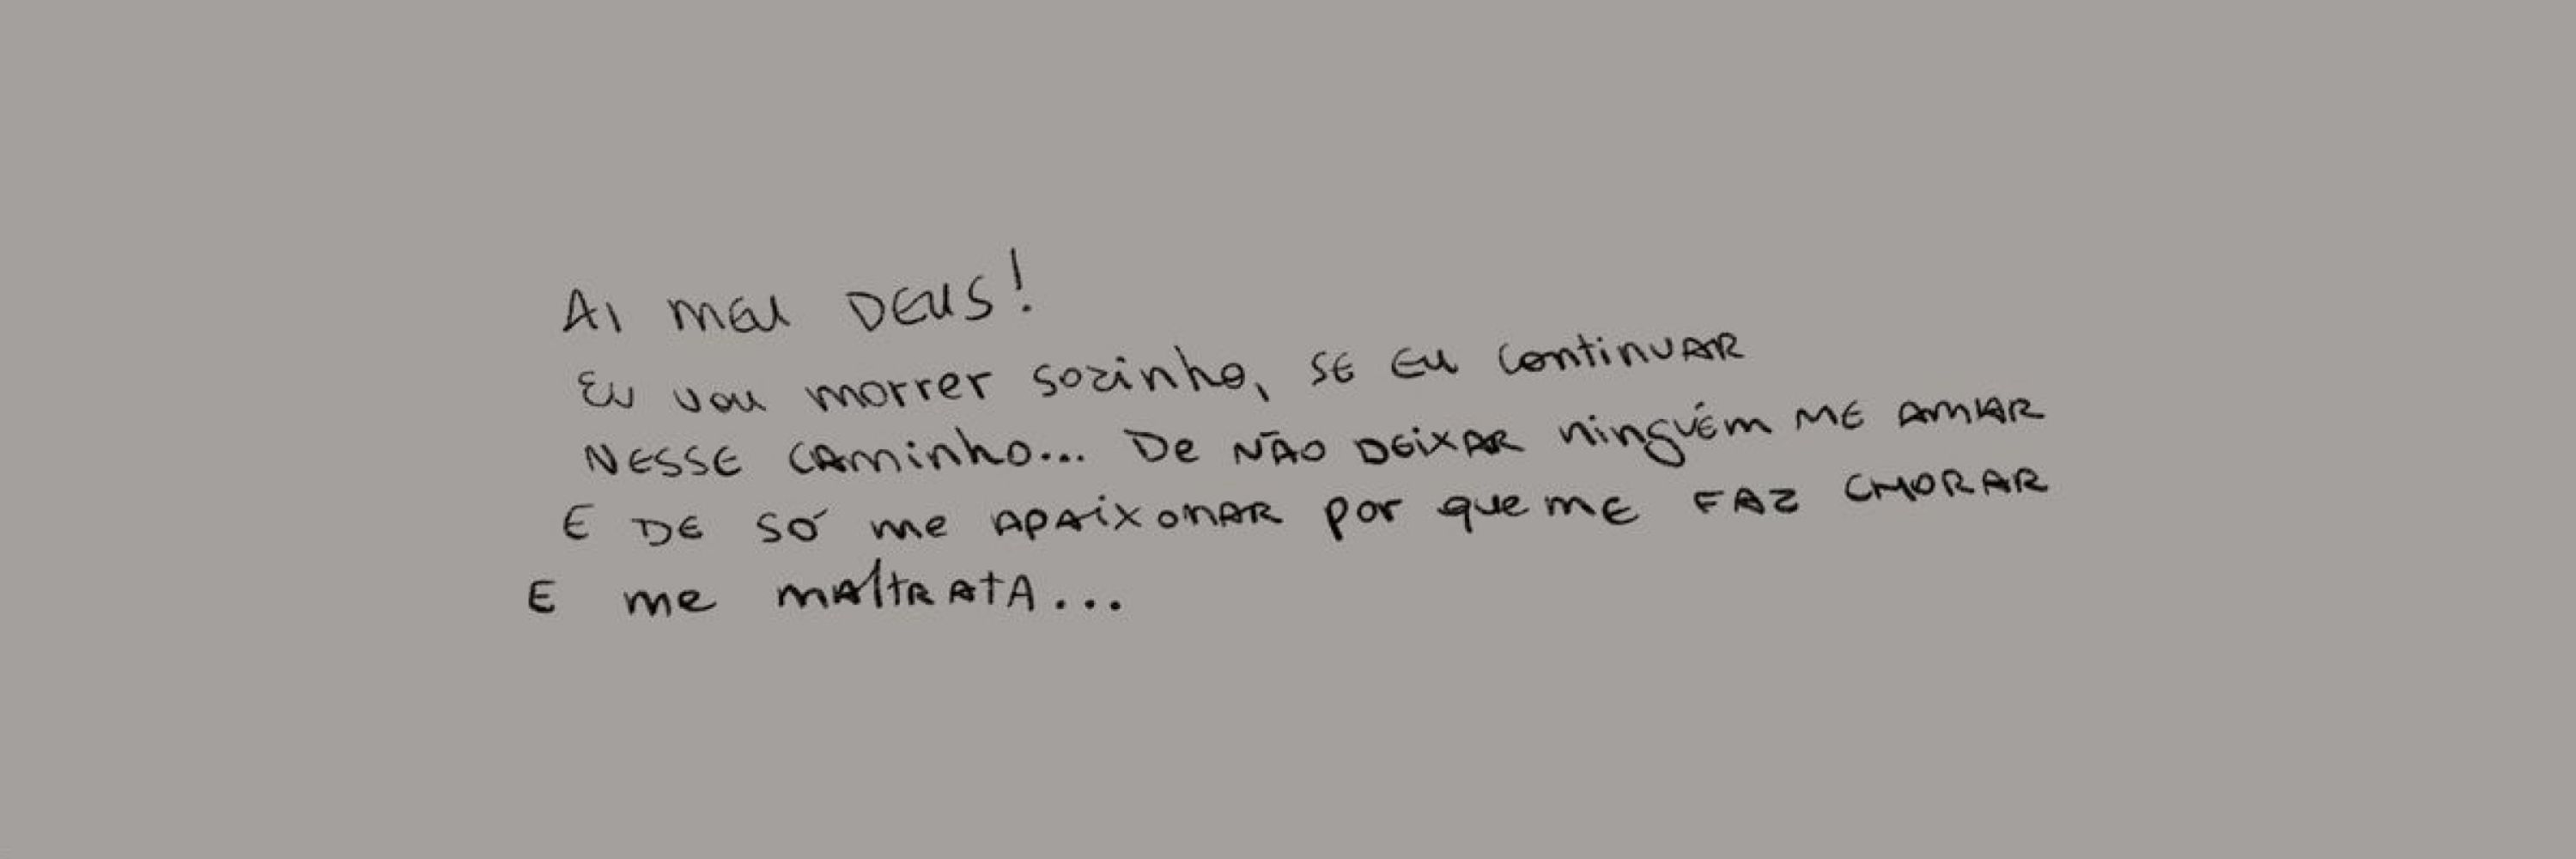 AI meu DEUS!
Eu vou morrer sozinho, SE Eu continuAR
NESSE CAminho... De NÃO DEiXAR ninguém ME AMAR
E DE SÓ me APAiXonAR por que mE FAZ CHORAR
E me mAltRAtA...